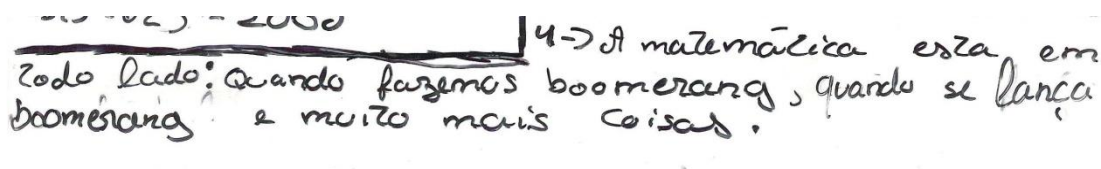 4-> A matemática esta em
todo lado: Quando fazemos boomerang, quando se lança
boomerang e muito mais coisas.